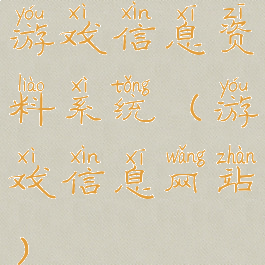 yóu xì xìn xī zī
游戏信息资
liào xì tǒng yóu
料系统（游
xì xìn xī wǎng zhàn
戏信息网站
）